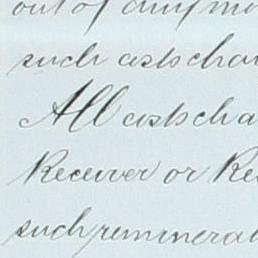 out of any mo
such costs cha
All costs cha
Receiver or Re
such remunerat